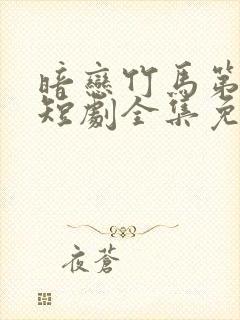 暗戀竹馬第
短劇全集免
夜蒼